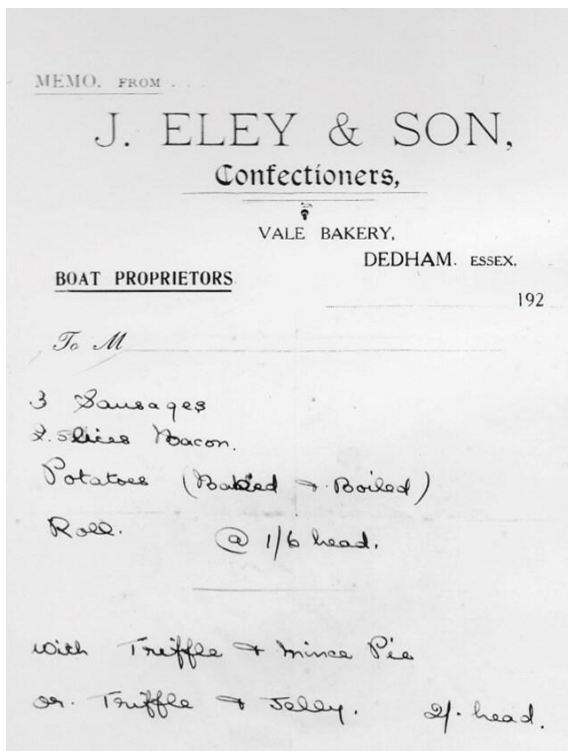 MEMO. FROM . . .
J. ELEY & SON,
Confectioners,
VALE BAKERY,
DEDHAM. ESSEX.
BOAT PROPRIETORS
192
To M
3 Sausages
2 slices Bacon.
Potatoes (Baked & Boiled)
Roll. @ 1/6 head.
with Triffle & Mince Pie
or Triffle & Jelly. 2/- head.